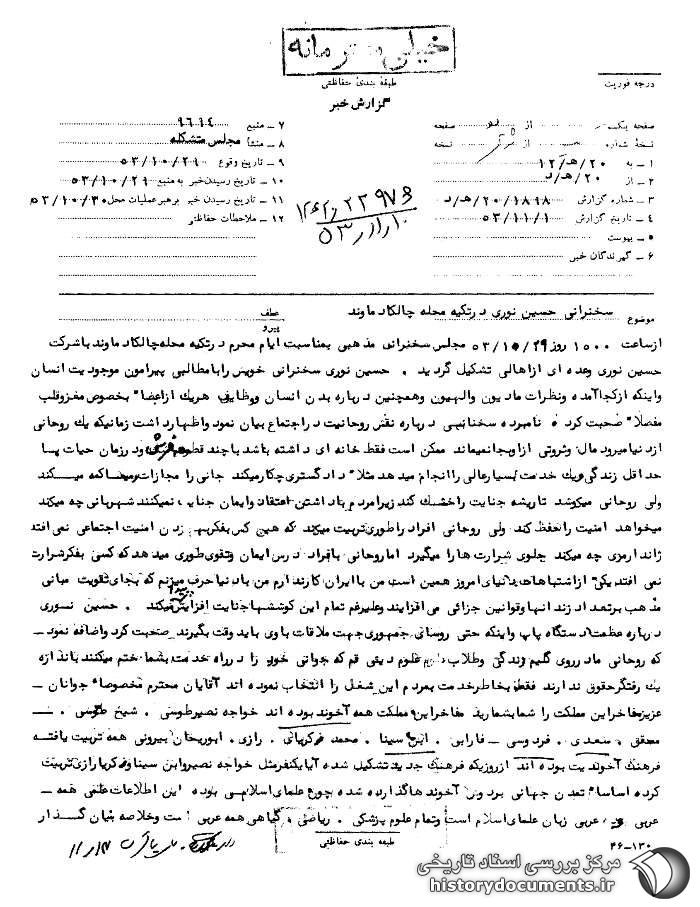 خیلی محرمانه
طبقه بندی حفاظتی
درجه فوریت
گزارش خبر
صفحه یک از صفحه
نسخه شماره از نسخه
۱ ـ به ۲۰/هـ/۱۲
۲ ـ از ۲۰/هـ/د
۳ ـ شماره گزارش ۲۰/۱۸۹۸/هـ/د
۴ ـ تاریخ گزارش ۵۳/۱۱/۱
۵ ـ پیوست
۶ ـ گیرندگان خبر
۷ ـ منبع ۹۶۱۴
۸ ـ منشأ مجلس متشکله
۹ ـ تاریخ وقوع ۵۳/۱۰/۲۹
۱۰ ـ تاریخ رسیدن خبر به منبع ۵۳/۱۰/۲۹
۱۱ ـ تاریخ رسیدن خبر برهبر عملیات محل ۵۳/۱۰/۳۰
۱۲ ـ ملاحظات حفاظتی
موضوع سخنرانی حسین نوری در تکیه محله چالکاد ماوند
عطف
پیرو
از ساعت ۱۵۰۰ روز ۵۳/۱۰/۲۹ مجلس سخنرانی مذهبی بمناسبت ایام محرم در تکیه محله چالکاد ماوند با شرکت
حسین نوری وعده ای از اهالی تشکیل گردید . حسین نوری سخنرانی خویش را با مطالبی پیرامون موجودیت انسان
واینکه از کجا آمده ونظرات مادیون والهیون وهمچنین درباره بدن انسان ووظایف هریک از اعضاء بخصوص مغزوقلب
مفصلا" صحبت کرد نامبرده سخنانی درباره نقش روحانیت در اجتماع بیان نمود واظهارداشت زمانیکه یک روحانی
از دنیا میرود مال وثروتی از او بجا نمیماند ممکن است فقط خانه ای داشته باشد با چند قطعه فرش ودر زمان حیات با
حداقل زندگی ویک خدمت بسیار عالی را انجام میدهد مثلا" دادگستری چکار میکند جانی را مجازات ومحاکمه میکند
ولی روحانی میکوشد تا ریشه جنایت را خشک کند زیرا مردم با داشتن اعتقاد وایمان جنایت نمیکنند شهربانی چه میکند
میخواهد امنیت را حفظ کند ولی روحانی افراد را طوری تربیت میکند که هیچ کس بفکر بهم زدن امنیت اجتماعی نمی افتد
ژاندارمری چه میکند جلوی شرارت ها را میگیرد اما روحانی با افراد درس ایمان وتقوی طوری میدهد که کسی بفکر شرارت
نمی افتد یکی از اشتباهات دنیای امروز همین است من با ایران کار ندارم من با دنیا حرف میزنم که بجای تقویت مبانی
مذهب بر تعداد زندانها وقوانین جزائی می افزایند وعلیرغم تمام این کوششها جنایت افزایش میکند . حسین نوری
درباره عظمت دستگاه پاپ واینکه حتی روسای جمهوری جهت ملاقات با وی باید وقت بگیرند صحبت کرد واضافه نمود ـ
که روحانی ما در روی گلیم زندگی وطلاب علوم دینی قم که جوانی خود را در راه خدمت بشما ختم میکنند باندازه
یک رفتگر حقوق ندارند فقط بخاطر خدمت بمردم این شغل را انتخاب نموده اند آقایان محترم مخصوصا" جوانان ـ
عزیز مفاخر این مملکت را شما بشمارید مفاخر این مملکت همه آخوند بوده اند خواجه نصیر طوسی . شیخ طوسی . ـ
محقق . سعدی . فردوسی ـ فارابی . ابن سینا . محمد زکریای رازی . ابوریحان بیرونی همه تربیت یافته
فرهنگ آخوندیت بوده اند از روزیکه فرهنگ جدید تشکیل شده آیا یکنفر مثل خواجه نصیر وابن سینا وزکریا رازی تربیت
کرده اساسا" تمدن جهانی بر دوش آخوندها گذارده شده چون علمای اسلامی بوده این اطلاعات علمی همه ـ
عربی عربی زبان علمای اسلام است وتمام علوم پزشکی . ریاضی وگیاهی همه عربی است وخلاصه بنیان گذار
طبقه بندی حفاظتی
۴۶-۱۳۰
مرکز بررسی اسناد تاریخی
historydocuments.ir